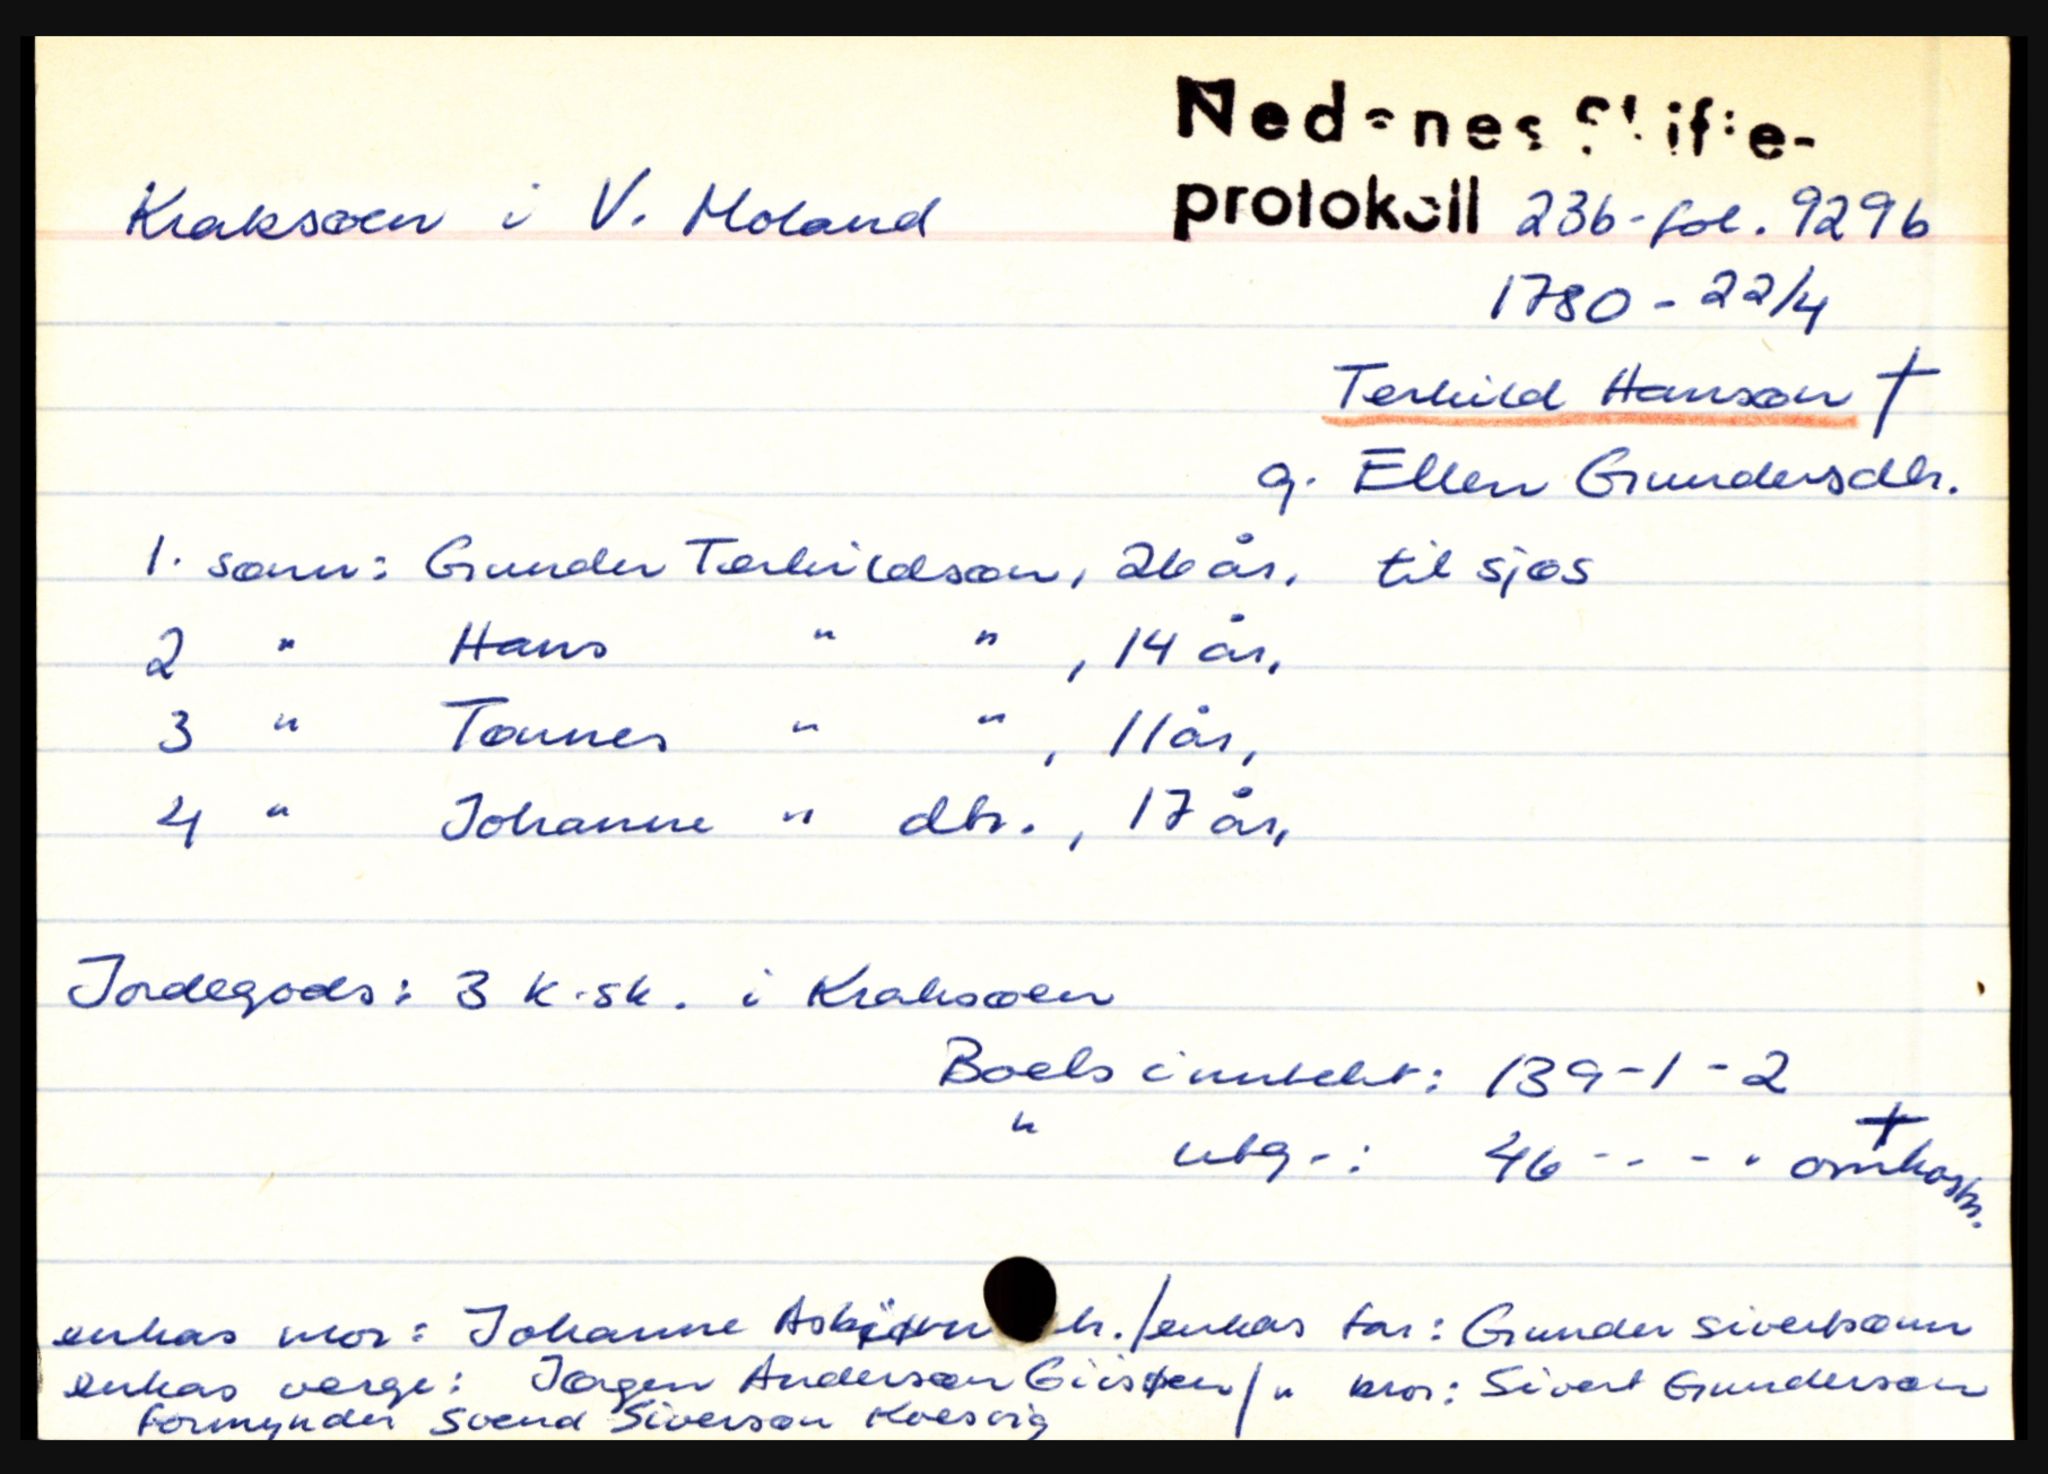 Nedenes Skifte-
Kraksøen i V. Moland protokoll 23b-fol. 929b
1780 - 22/4
Terkild Hansøn †
g. Ellen Gundersdtr.
1. sønn: Gunder Terkildsøn, 26 år, til sjøs
2 " Hans " " , 14 år,
3 " Tønnes " " , 11 år,
4 " Johanne " dtr. , 17 år,
Jordegods: 3 k.sk. i Kraksøen
Boets inntekt: 139-1-2
" utg-: 46 - - - - + omkostn.
enkas mor: Johanne / enkas far: Gunder Sivertsønn
enkas verge: Jørgen Andersøn / " bror: Sivert Gundersøn
formynder Svend Siversøn